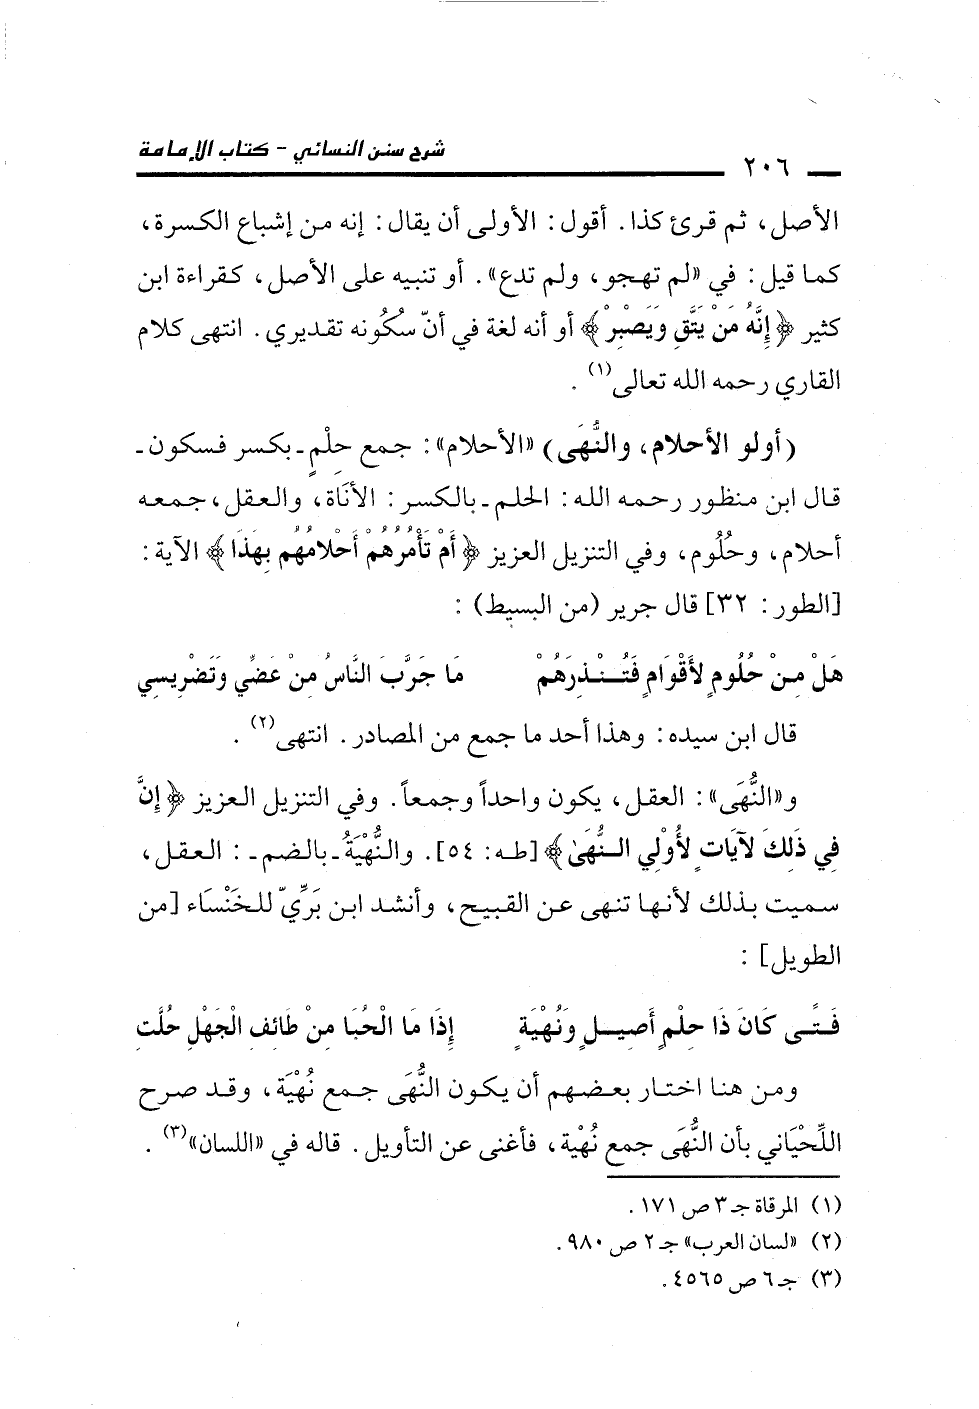 شرح سنن النسائي - كتاب الإمامة
٢٠٦
الأصل، ثم قرئ كذا. أقول: الأولى أن يقال: إنه من إشباع الكسرة،
كما قيل: في «لم تهجو، ولم تدع». أو تنبيه على الأصل، كقراءة ابن
كثير ﴿إِنَّهُ مَنْ يَتَّقِ وَيَصْبِرْ﴾ أو أنه لغة في أنّ سُكُونه تقديري. انتهى كلام
القاري رحمه الله تعالى(١).
(أولو الأحلام، والنُّهَى) «الأحلام»: جمع حلْمٍ ـ بكسر فسكون ـ
قال ابن منظور رحمه الله: الحلم ـ بالكسر: الأنَاة، والعقل، جمعه
أحلام، وحُلُوم، وفي التنزيل العزيز ﴿أَمْ تَأْمُرُهُمْ أَحْلامُهُم بِهَذَا﴾ الآية:
[الطور: ٣٢] قال جرير (من البسيط):
هَلْ مِنْ حُلُومٍ لأَقْوَامٍ فَتُنْذِرَهُمْ مَا جَرَّبَ النَّاسُ مِنْ عَضِّي وَتَضْرِيسِي
قال ابن سيده: وهذا أحد ما جمع من المصادر. انتهى(٢).
و«النُّهَى»: العقل، يكون واحداً وجمعاً. وفي التنزيل العزيز ﴿إِنَّ
فِي ذَلِكَ لآيَاتٍ لأُوْلِي النُّهَىٰ﴾ [طه: ٥٤]. والنُّهْيَةُ ـ بالضم ـ: العقل،
سميت بذلك لأنها تنهى عن القبيح، وأنشد ابن بَرِّيّ للخَنْسَاء [من
الطويل]:
فَتًى كَانَ ذَا حِلْمٍ أَصِيلٍ وَنُهْيَةٍ إِذَا مَا الْحُبَا مِنْ طَائِفِ الْجَهْلِ حُلَّتِ
ومن هنا اختار بعضهم أن يكون النُّهَى جمع نُهْيَة، وقد صرح
اللِّحْيَاني بأن النُّهَى جمع نُهْية، فأغنى عن التأويل. قاله في «اللسان»(٣).
(١) المرقاة جـ٣ ص ١٧١.
(٢) «لسان العرب» جـ٢ ص ٩٨٠.
(٣) جـ٦ ص ٤٥٦٥.